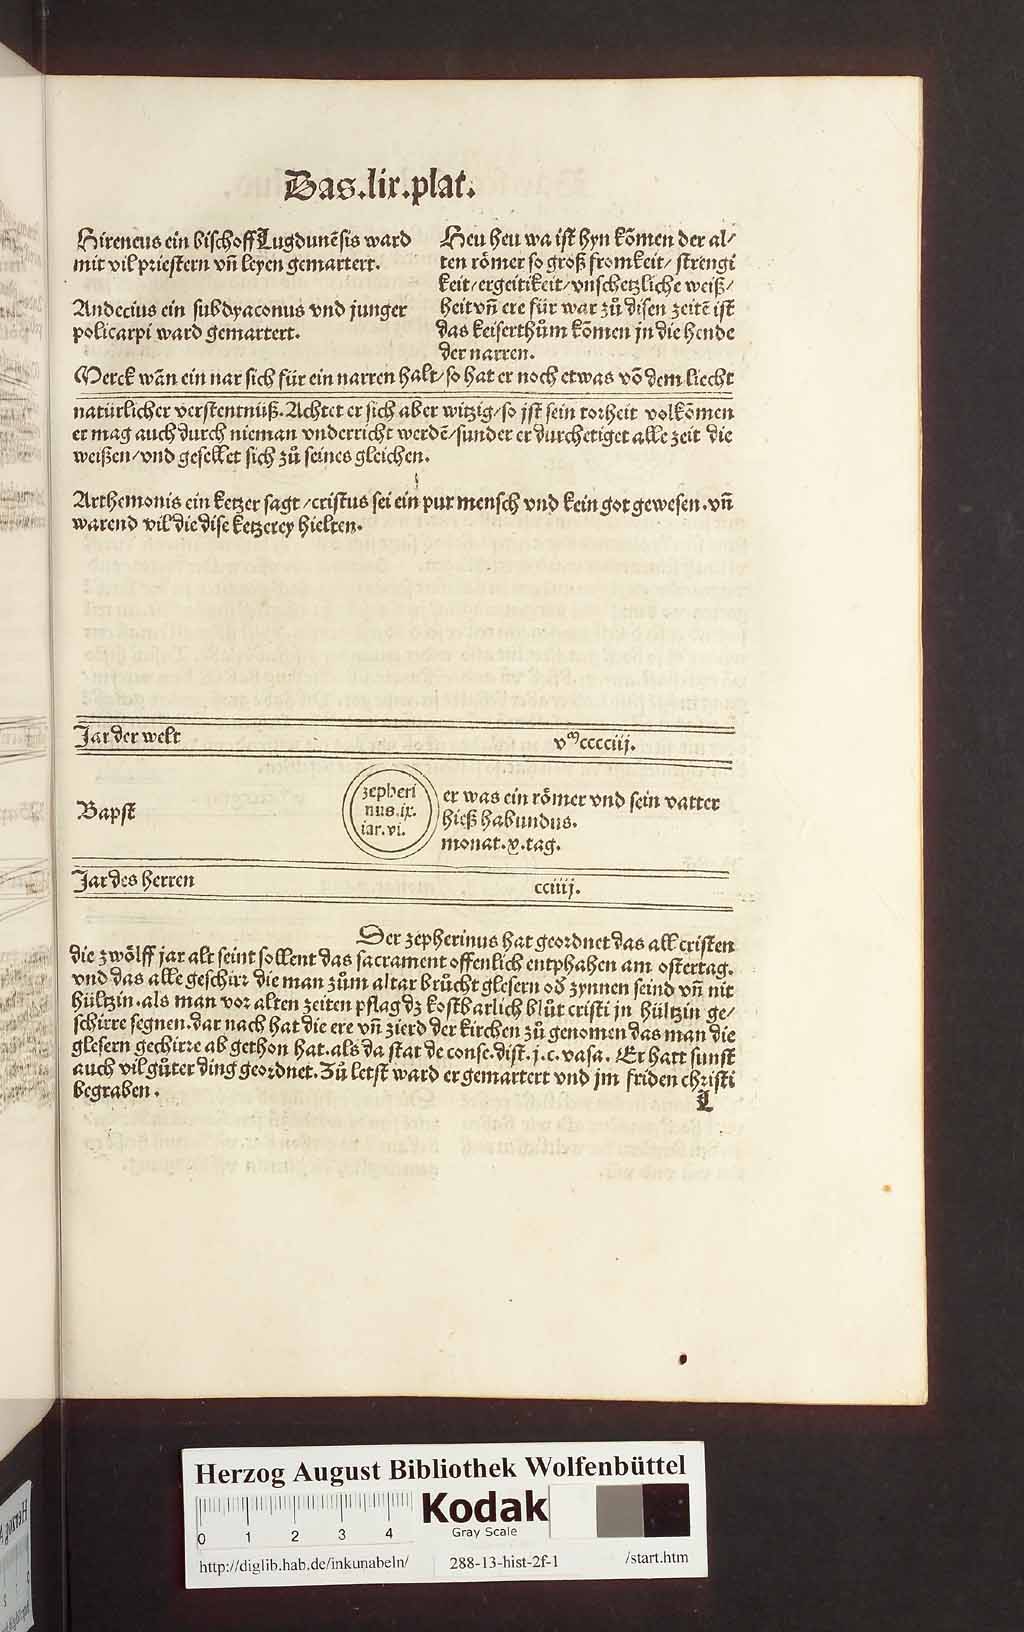 Das.lix.plat.
Hireneus ein bischoff Lugdunēsis ward
mit vil priestern vn̄ leyen gemartert.
Andecius ein subdyaconus vnd junger
policarpi ward gemartert.
Heu heu wa ist hyn kōmen der al/
ten römer so groß fromkeit/ strengi
keit/ergeitikeit/vnschetzliche weiß/
heit vn̄ ere für war zů disen zeitē ist
das keiserthům kōmen jn die hende
der narren.
Merck wān ein nar sich für ein narren halt/so hat er noch etwas vō dem liecht
natürlicher verstentnüß. Achtet er sich aber witzig/so jst sein torheit volkōmen
er mag auch durch nieman vnderricht werdē/sunder er durchetiget alle zeit die
weißen/vnd gesellet sich zů seines gleichen.
Arthemonis ein ketzer sagt/cristus sei ein pur mensch vnd kein got gewesen.vn̄
warend vil die dise ketzerey hielten.
Jar der welt
vᵐcccciij.
Bapst
zepheri
nus.ix.
iar.vi.
er was ein römer vnd sein vatter
hieß habundus.
monat.x.tag.
Jar des herren
cciiij.
Der zepherinus hat geordnet das all cristen
die zwölff jar alt seint sollent das sacrament offenlich entphahen am ostertag.
vnd das alle geschirr die man zům altar brůcht glesern od zynnen seind vn̄ nit
hültzin.als man vor alten zeiten pflag dz kostbarlich blůt cristi jn hültzin ge/
schirre segnen.dar nach hat die ere vn̄ zierd der kirchen zů genomen das man die
glesern gechirre ab gethon hat.als da stat de conse.dist.j.c.vasa. Er hatt sunst
auch vil gůter ding geordnet.Zů letst ward er gemartert vnd jm friden christi
begraben.
L
Herzog August Bibliothek Wolfenbüttel
0 1 2 3 4
Kodak
Gray Scale
http://diglib.hab.de/inkunabeln/ 288-13-hist-2f-1 /start.htm